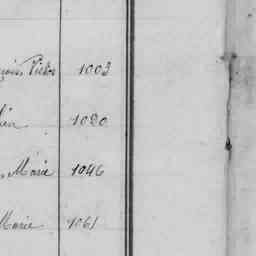 çois Victor 1003
lien 1020
Marie 1046
Marie 1061